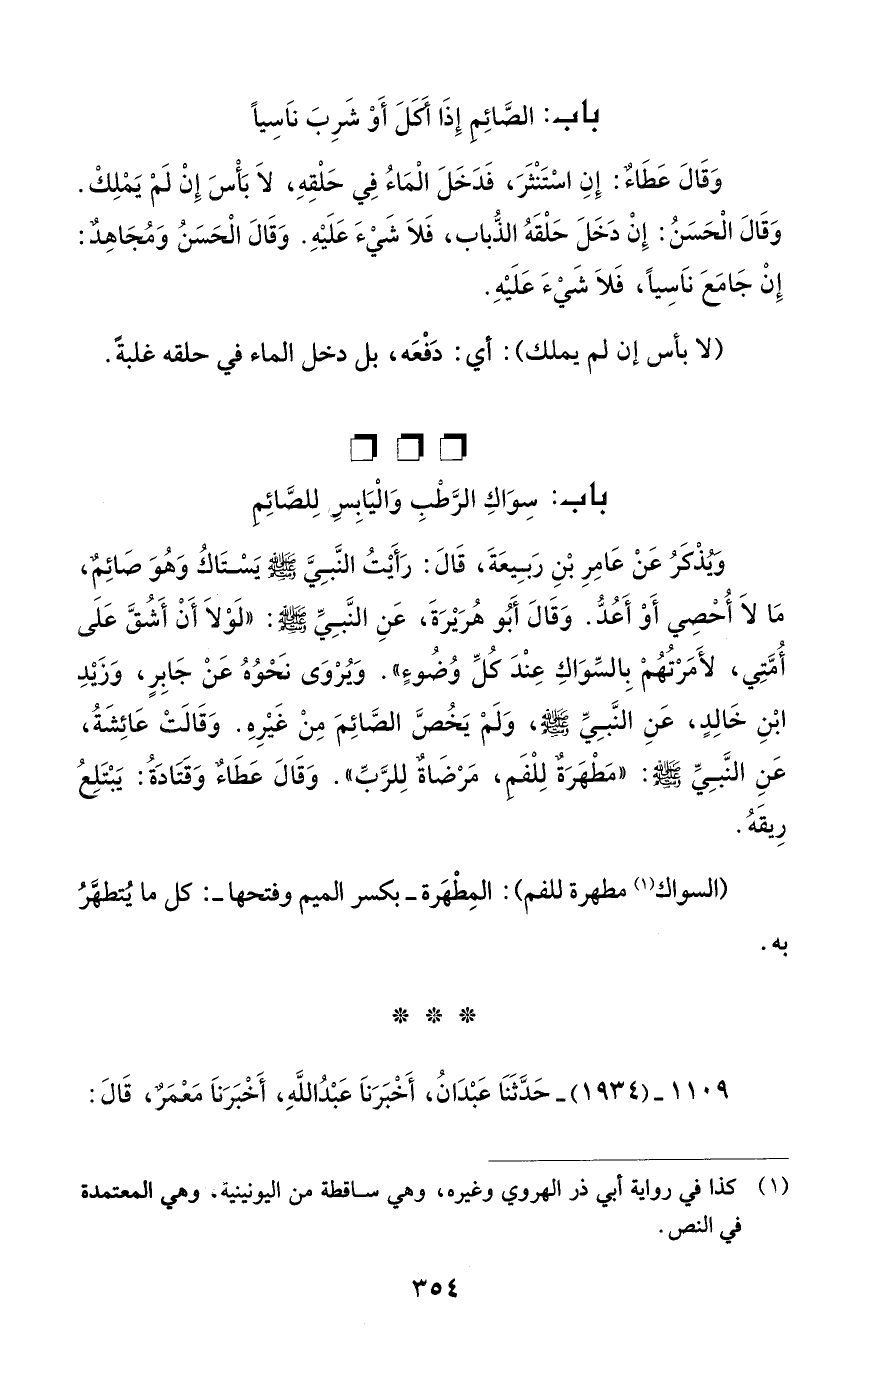 باب: الصَّائِمِ إِذَا أَكَلَ أَوْ شَرِبَ نَاسِياً
وَقَالَ عَطَاءٌ: إِنِ اسْتَنْثَرَ، فَدَخَلَ الْمَاءُ فِي حَلْقِهِ، لاَ بَأْسَ إِنْ لَمْ يَمْلِكْ.
وَقَالَ الْحَسَنُ: إِنْ دَخَلَ حَلْقَهُ الذُّباب، فَلاَ شَيْءَ عَلَيْهِ. وَقَالَ الْحَسَنُ وَمُجَاهِدٌ:
إِنْ جَامَعَ نَاسِياً، فَلاَ شَيْءَ عَلَيْهِ.
(لا بأس إن لم يملك): أي: دَفْعَه، بل دخل الماء في حلقه غلبةً.
باب: سِوَاكِ الرَّطْبِ وَالْيَابِسِ لِلصَّائِمِ
وَيُذْكَرُ عَنْ عَامِرِ بْنِ رَبِيعَةَ، قَالَ: رَأَيْتُ النَّبِيَّ ﷺ يَسْتَاكُ وَهُوَ صَائِمٌ،
مَا لاَ أُحْصِي أَوْ أَعُدُّ. وَقَالَ أَبُو هُرَيْرَةَ، عَنِ النَّبِيِّ ﷺ: «لَوْلاَ أَنْ أَشُقَّ عَلَى
أُمَّتِي، لأَمَرْتُهُمْ بِالسِّوَاكِ عِنْدَ كُلِّ وُضُوءٍ». وَيُرْوَى نَحْوُهُ عَنْ جَابِرٍ، وَزَيْدِ
ابْنِ خَالِدٍ، عَنِ النَّبِيِّ ﷺ، وَلَمْ يَخُصَّ الصَّائِمَ مِنْ غَيْرِهِ. وَقَالَتْ عَائِشَةُ،
عَنِ النَّبِيِّ ﷺ: «مَطْهَرَةٌ لِلْفَمِ، مَرْضَاةٌ لِلرَّبِّ». وَقَالَ عَطَاءٌ وَقَتَادَةُ: يَبْتَلِعُ
رِيقَهُ.
(السواك(١) مطهرة للفم): المِطْهَرة ـ بكسر الميم وفتحها ـ: كل ما يُتطهَّرُ
به.
* * *
١١٠٩ ـ (١٩٣٤) ـ حَدَّثَنَا عَبْدَانُ، أَخْبَرَنَا عَبْدُاللَّهِ، أَخْبَرَنَا مَعْمَرٌ، قَالَ:
(١) كذا في رواية أبي ذر الهروي وغيره، وهي ساقطة من اليونينية، وهي المعتمدة
في النص.
٣٥٤